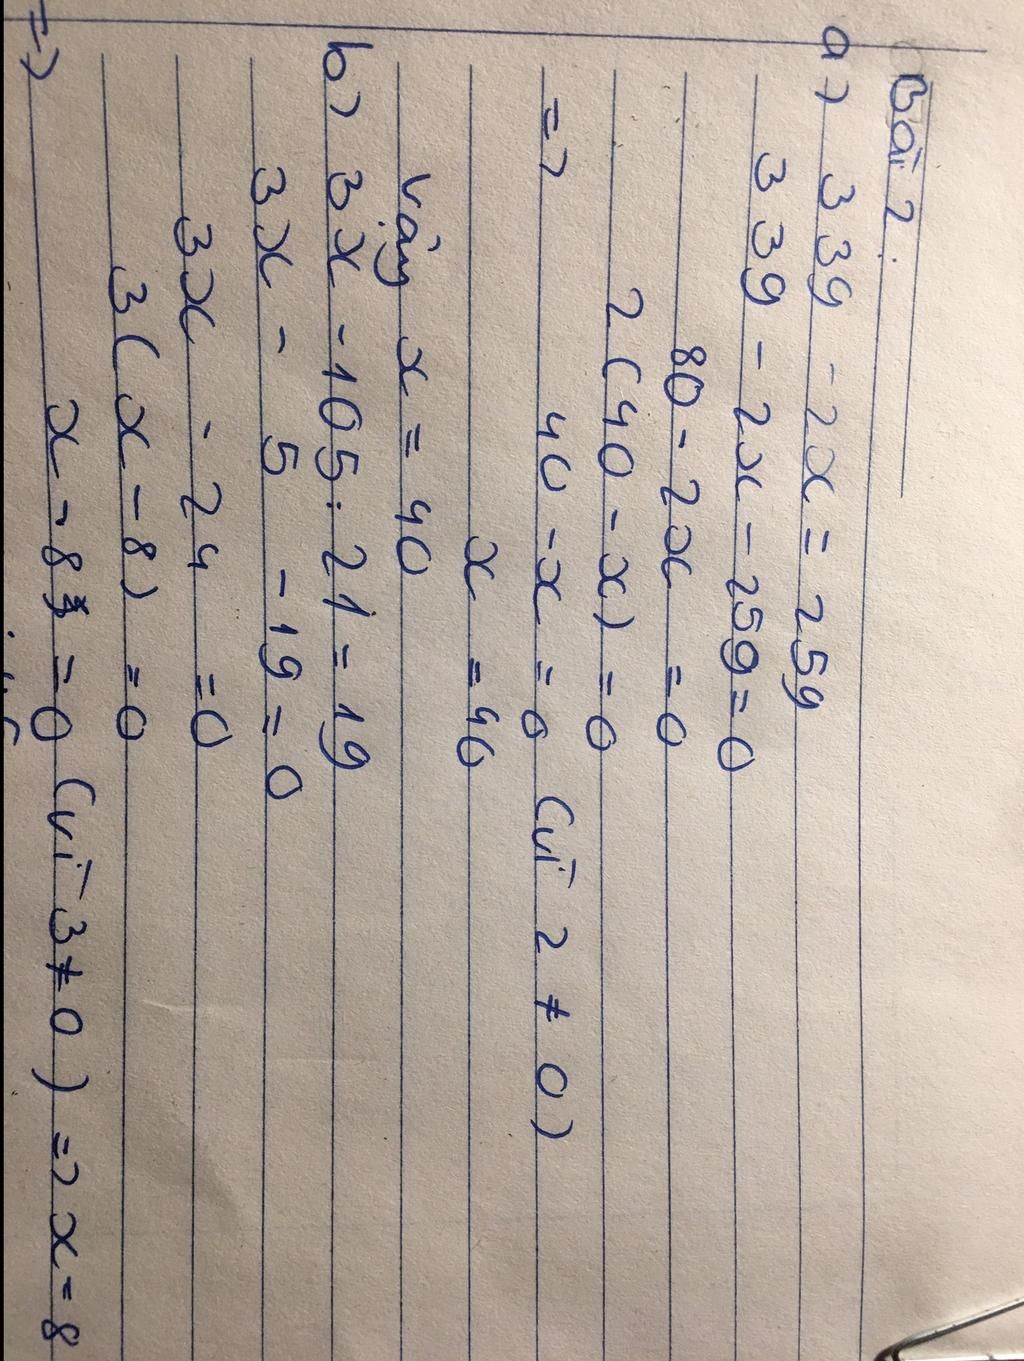 Bài 2:
a) 339 - 2x = 259
339 - 2x - 259 = 0
80 - 2x = 0
2(40 - x) = 0
=> 40 - x = 0 (vì 2 ≠ 0)
x = 40
Vậy x = 40
b) 3x - 105 : 21 = 19
3x - 5 - 19 = 0
3x - 24 = 0
3(x - 8) = 0
=> x - 8 = 0 (vì 3 ≠ 0) => x = 8